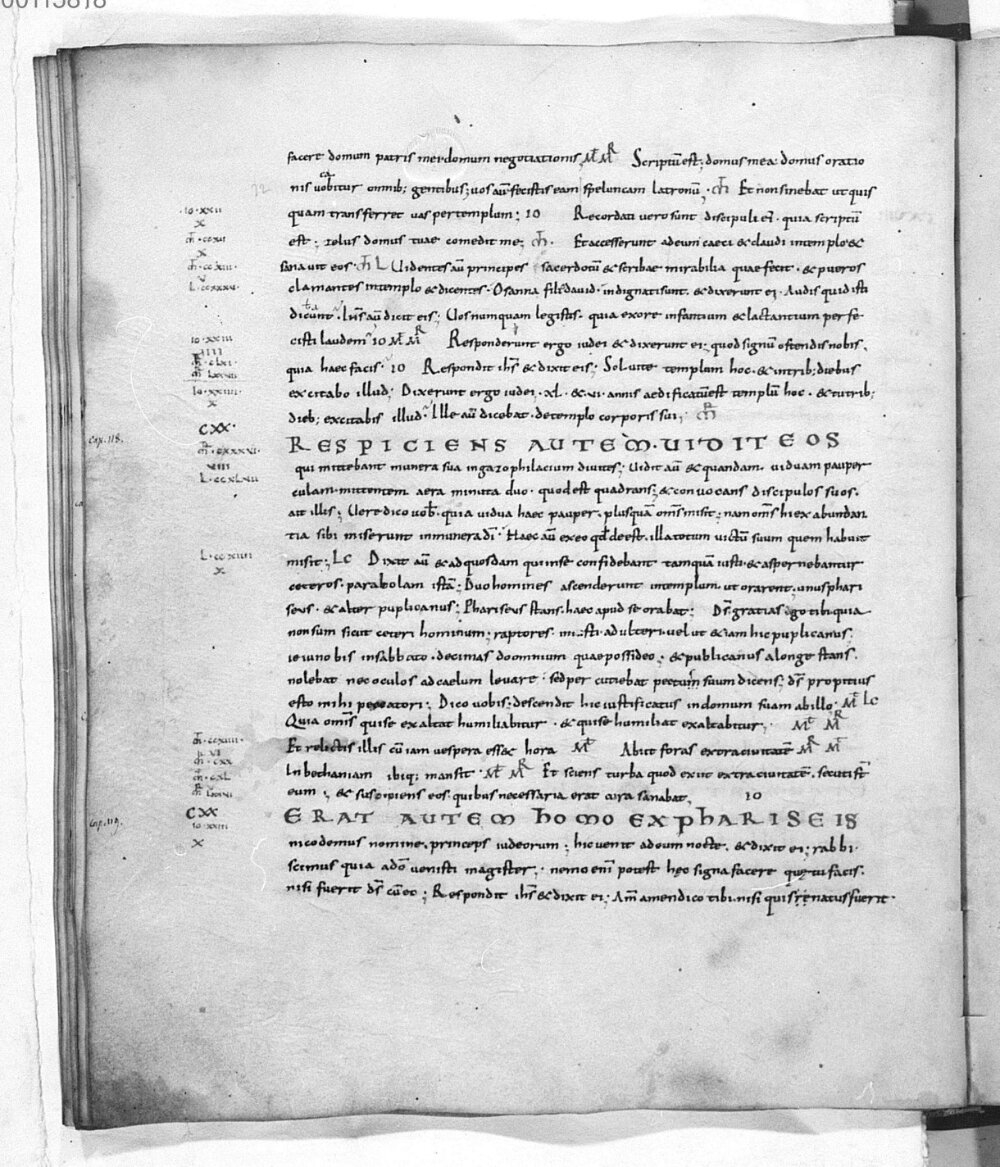 00113818
facere domum patris mei domum negotiationis; M̄ M̄R Scriptū est; domus mea domus oratio
nis vocabitur omnib; gentibus; vos aū fecistis eam speluncam latronū, m̄ Et non sinebat ut quis
·io·xxii· quam transferret vas per templum; IO Recordati vero sunt discipuli ei· quia scriptū
x
est; zelus domus tuae comedit me; m̄· Et accesserunt ad eum caeci & claudi in templo &
x
m̄·ccxiii· sanavit eos· m̄ L Videntes aū principes sacerdotū & scribae mirabilia quae fecit· & pueros
L·ccxxxv· clamantes in templo & dicentes· Osanna filio david· indignati sunt· & dixerunt ei· Audis quid isti
dicunt· Ihs aū dicit eis; Vos numquam legistis· quia ex ore infantium & lactantium perfe
·io·xxiii cisti laudem IO M̄ M̄R Responderunt ergo iudei & dixerunt ei; quod signū ostendis nobis·
quia haec facis· IO Respondit ihs & dixit eis; Solvite templum hoc· & in trib; diebus
·io·xxiiii· excitabo illud; Dixerunt ergo iudei· XL· & VI· annis aedificatū est templū hoc· & tu trib;
x
dieb; excitabis illud· Ille aū dicebat· de templo corporis sui,
CXX·
Cap. 118. RESPICIENS AUTEM· UIDIT EOS
qui mittebant munera sua in gazophilacium divites; Vidit aū & quandam· viduam pauper
L·ccxlvii culam· mittentem aera minuta duo· quod est quadrans; & convocans discipulos suos·
ait illis; Vere dico vob· quia vidua haec pauper· plus quā oms misit; nam oms hi ex abundan
tia sibi miserunt in munera di· Haec aū ex eo qd deest· illa totum victū suum quem habuit
L·ccxiiii misit; LC Dixit aū & ad quosdam qui in se confidebant tamquā iusti & aspernebantur
x
ceteros· parabolam istā; Duo homines ascenderunt in templum· ut orarent· unus phari
seus· & alter puplicanus; Phariseus stans· haec apud se orabat; Ds gratias ago tibi quia
non sum sicut ceteri hominum; raptores· iniusti adulteri· vel ut & iam hic puplicanus;
ieiuno bis in sabbato· decimas do omnium quae possideo· & publicanus a longe stans·
nolebat nec oculos ad caelum levare· sed percutiebat pectus suum dicens; ds propitius
esto mihi peccatori; Dico vobis; descendit hic iustificatus in domum suam ab illo· M̄ LC
Quia omis qui se exaltat humiliabitur· & qui se humiliat exaltabitur, M̄ M̄R
Et relictis illis cū iam vespera esset hora M̄ Abiit foras extra civitatē M̄R M̄
m̄·cxx In bethaniam ibiq; mansit· M̄ M̄R Et sciens turba quod exiit extra civitatē, secuti st
m̄·cxl
eum; & suscipiens eos· quibus necessaria erat cura sanabat, IO
CXX
Cap. 119. ERAT AUTEM HOMO EX PHARISEIS
·io·xxiii·
x nicodemus nomine, princeps iudeorum; hic venit ad eum nocte, & dixit ei; rabbi·
scimus quia a do venisti magister, nemo eni potest hec signa facere que tu facis·
nisi fuerit ds cū eo; Respondit ihs & dixit ei; Am̄ amen dico tibi· nisi quis renatus fuerit·